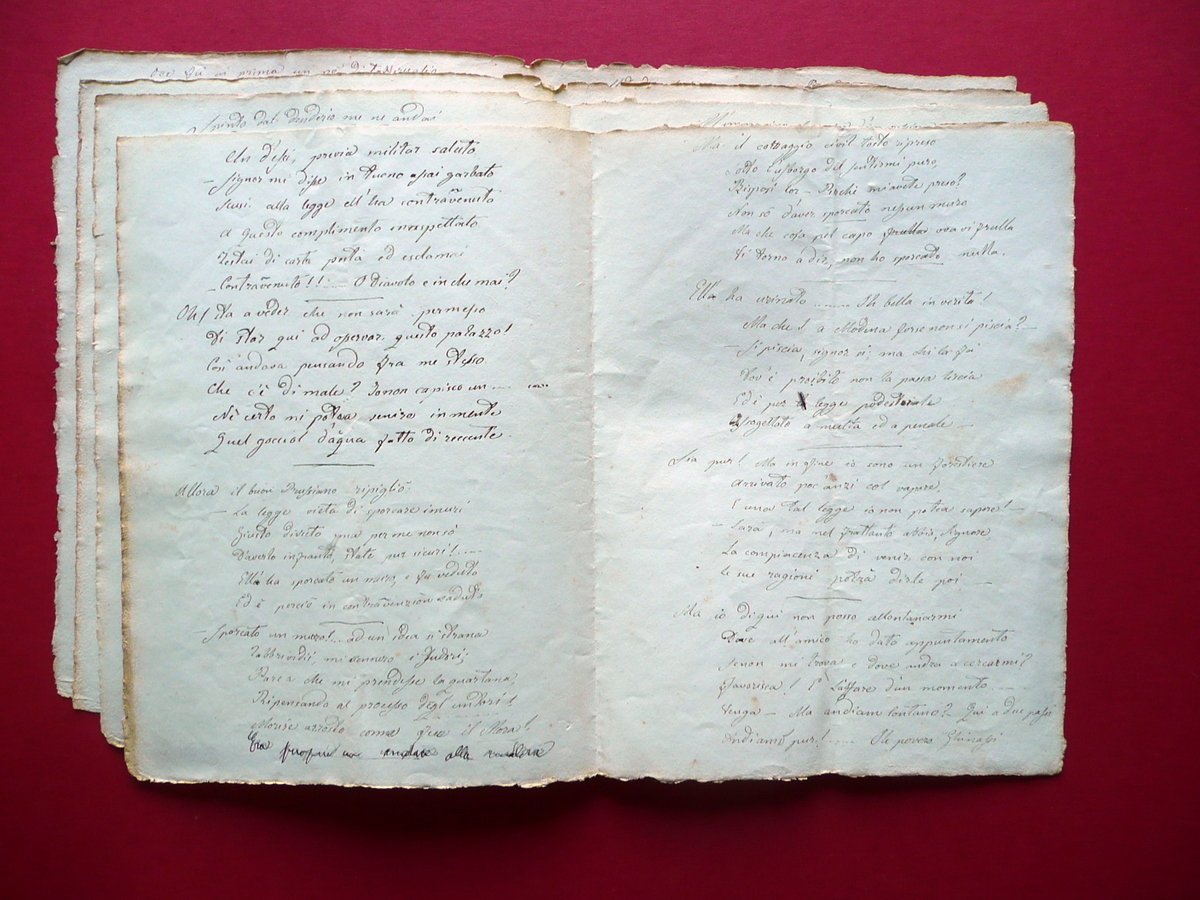 Ove fù vi prima un pò di
Spinto dal desiderio me ne andai
Un d'essi, previa militar saluto
– Signor mi disse in tuono assai garbato
Scusi alla legge ell'ha contravvenuto
A questo complimento inaspettato
Restai di carta pesta ed esclamai
– Contravvenuto!! ..... O Diavolo e in che mai?
Oh! Sta a veder che non sarà permesso
Di star qui ad osservar questo palazzo!
Così andava pensando fra me stesso
Che c'è di male? Io non capisco un ......
Nè certo mi potea venire in mente
Quel gocciol d'aqua fatto di reccente.
Allora il buon Prussiano ripigliò
– La legge vieta di sporcare i muri
Giusto divieto ma per me non sò
D'averlo infranto, state pur sicuri! .....
Ella ha sporcato un muro, e fu veduto
Ed è perciò in contravvenzion caduto
Sporcato un muro!... ad un idea sì strana
Rabbrividii, mi vennero i sudori;
Parea che mi prendesse la quartana,
Ripensando al processo degl'untori!
Morire arrosto come fece il Mora!
Era proprio un andare alla malora
Ma il coraggio civil tosto ripreso
Sotto l'usbergo del sentirmi puro,
Risposi lor – Perchè m'avete preso?
Non sò d'aver sporcato nessun muro
Ma che cosa pel capo ora vi frulla
Vi torno a dir, non ho sporcato nulla.
Ella ha urinato ....... Oh bella in verità!
Ma che! a Modena forse non si piscia? –
– Si piscia, signor sì, ma chi la fa
Dov'è proibito non la passa liscia
Ed è per legge podestarile
Assogettato a multa ed a penale –
Sia pur! Ma in fine io sono un forestiere
Arrivato poc'anzi col vapore,
E una tal legge io non potea sapere!
– Sarà, ma nel frattanto abbia, Signore
La compiacenza di venir con noi
Le sue ragioni potrà dirle poi –
Ma io di qui non posso allontanarmi
Dove all'amico ho dato appuntamento
Se non mi trova e dove andrà a cercarmi?
Favorisca! È l'affare d'un momento
Venga – Ma andiam lontano? Qui a due passi
Andiam pur! ...... Oh povero Ghinassi